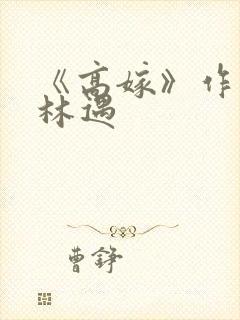 《高嫁》作
林遇
曹铮